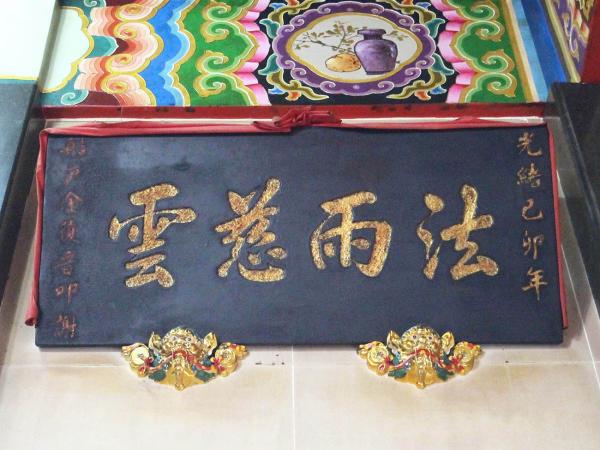 光緒己卯年
法雨慈雲
船戶金復晋叩謝